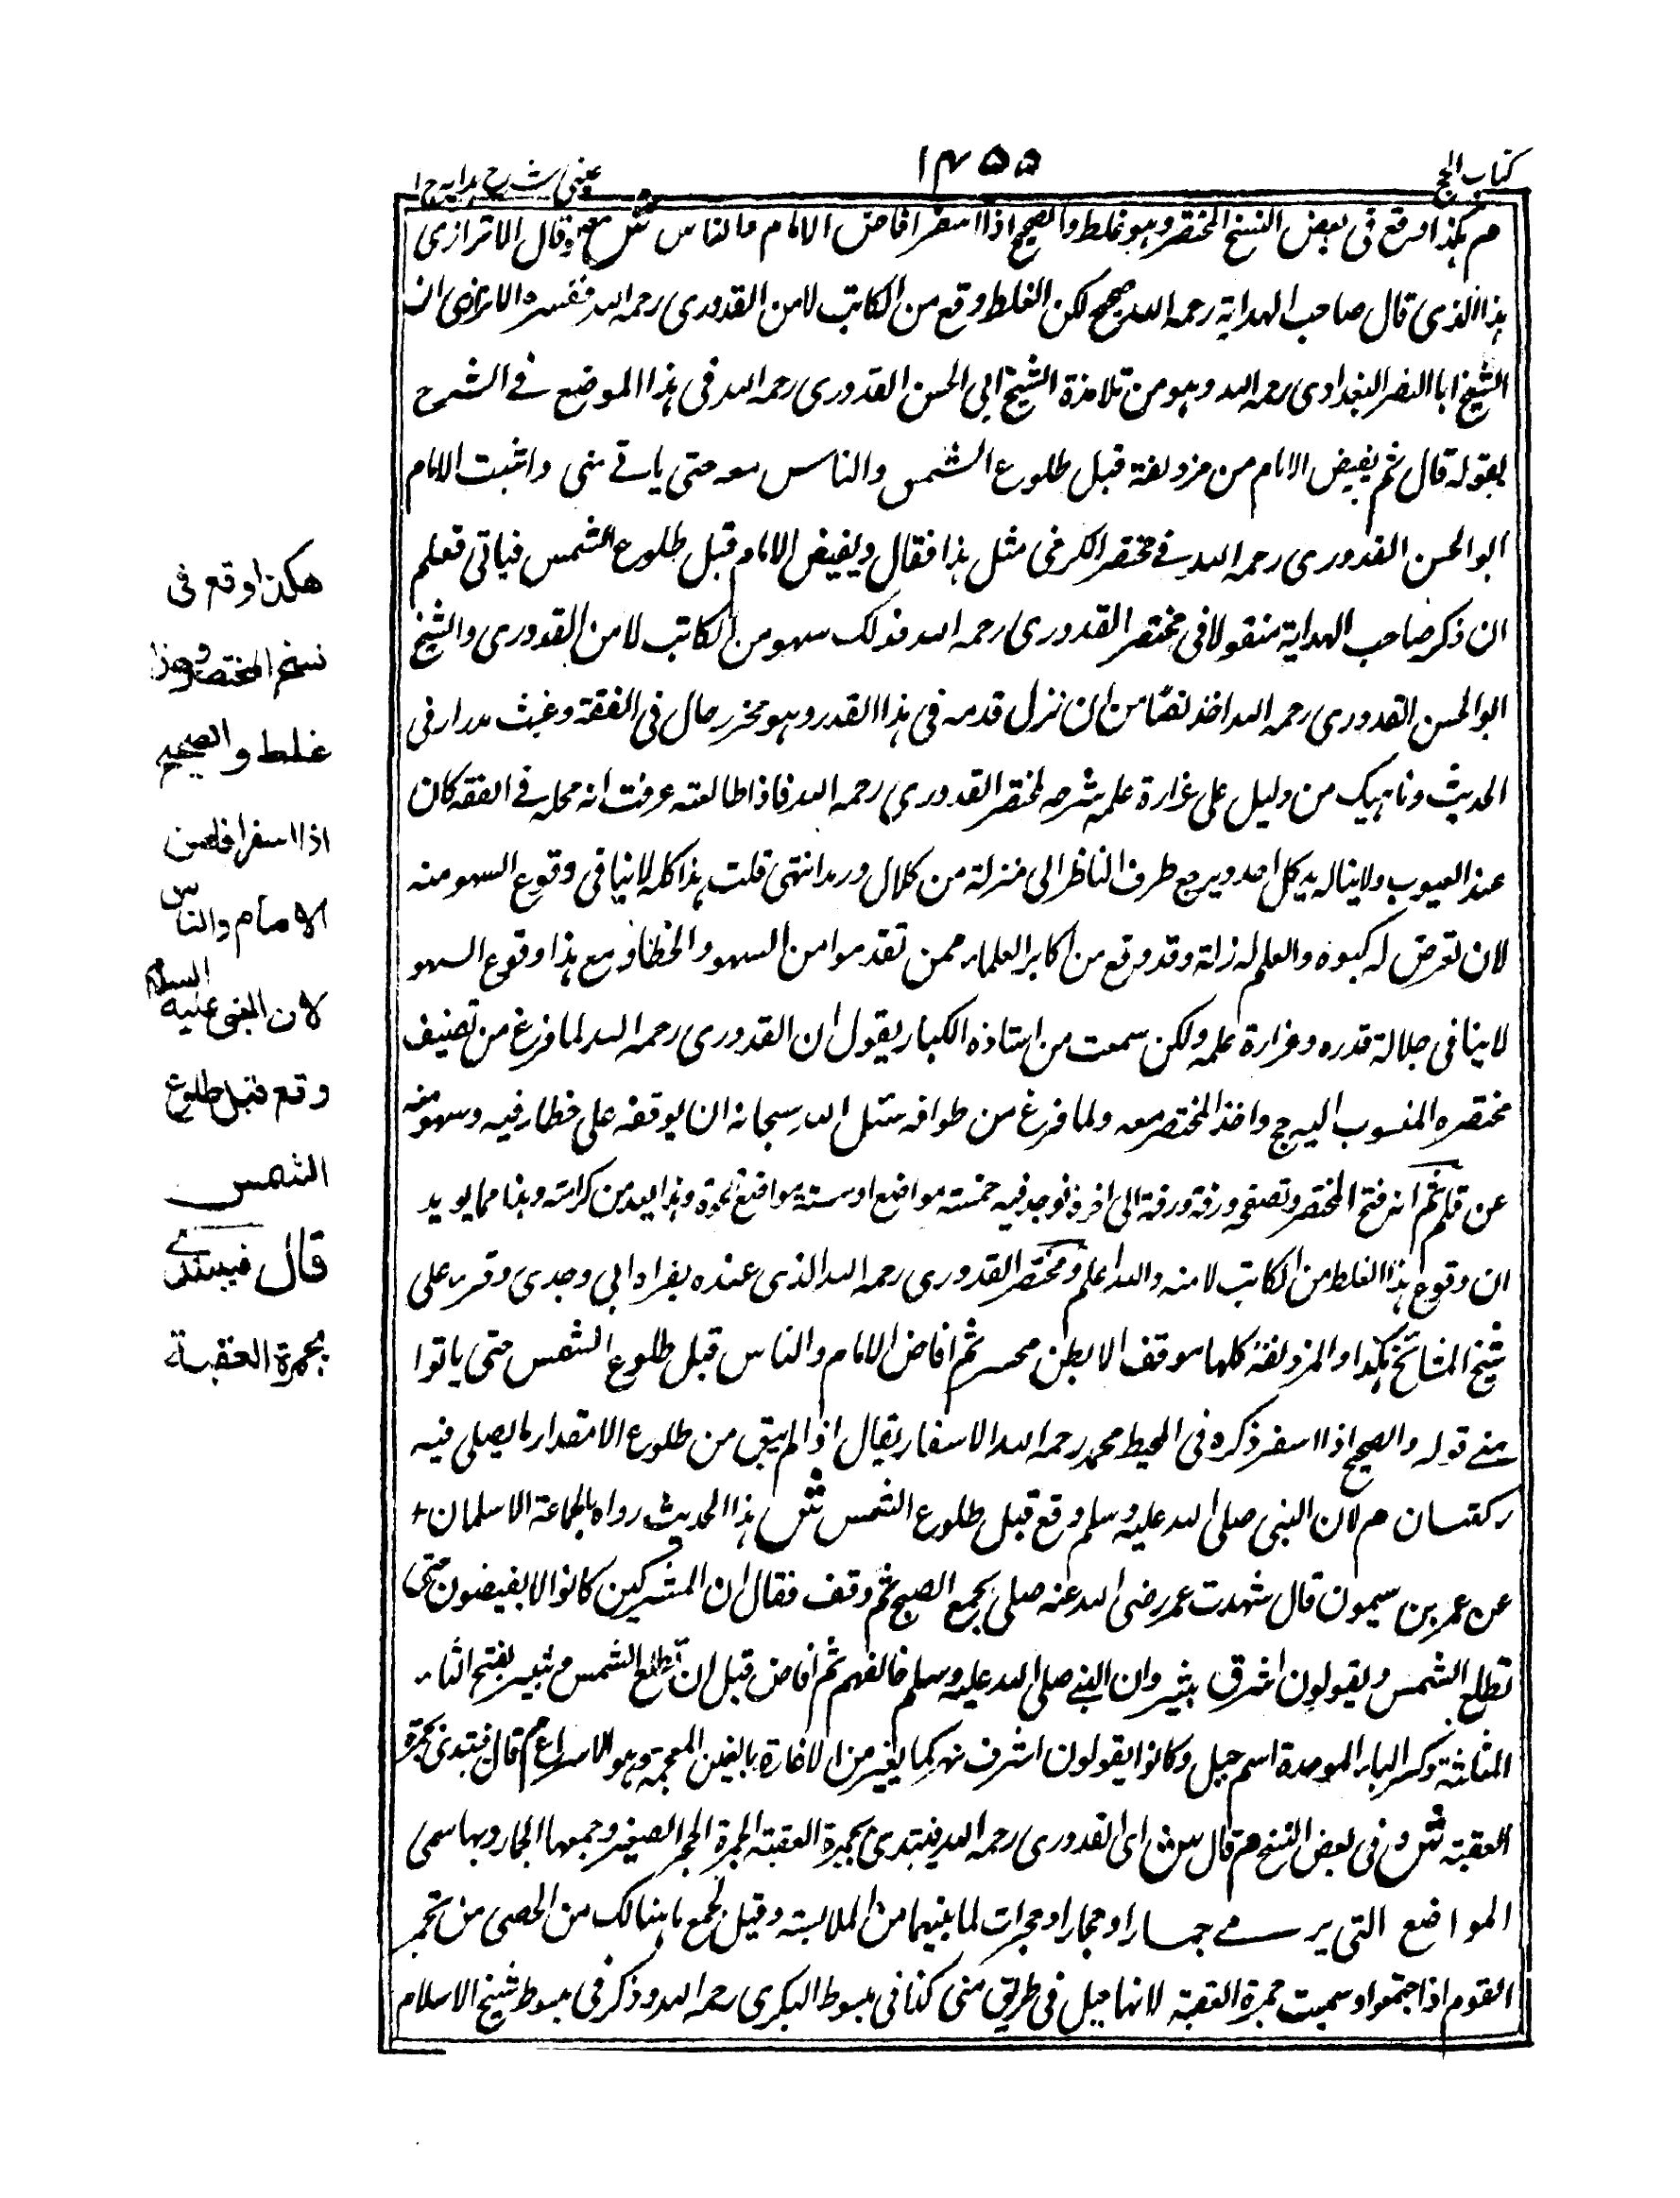 كتاب الحج
١٤٥٥
عيني شرح هداية ج ١
م هكذا وقع في بعض النسخ المختصر وهو غلط والصحيح اذا اسفر افاض الامام والناس معه ش وقال الاترازي
هذا الذي قال صاحب الهداية رحمه الله صحيح لكن الغلط وقع من الكاتب لا من القدوري رحمه الله الاترازي ان
الشيخ ابا النصر البغدادي رحمه الله وهو من تلامذة الشيخ ابي الحسن القدوري رحمه الله في هذا الموضع في الشرح
بقوله قال ثم يفيض الامام من مزدلفة قبل طلوع الشمس والناس معه حتى ياتي منى واثبت الامام
ابو الحسن القدوري رحمه الله في مختصر الكرخي مثل هذا فقال ويفيض الامام قبل طلوع الشمس فياتي فعلم
ان ذكر صاحب الهداية منقولا في مختصر القدوري رحمه الله فذلك سهو من الكاتب لا من القدوري والشيخ
ابو الحسن القدوري رحمه الله من ان نزل قدمه في هذا القدر وهو في الفقه وغيث مدرار في
الحديث وناهيك من دليل على غزارة علمه شرحه لمختصر القدوري رحمه الله فاذا طالعته عرفت انه محله في الفقه كان
عند العيوب ولا يناله يد كل احد ويرجع طرف الناظر الى منزلة من كلال انتهى قلت هذا كله لا ينافي وقوع السهو منه
لان لعرض له كبوة والعلم له زلة وقد وقع من اكابر العلماء ممن تقدموا من السهو والخطأ ومع هذا وقوع السهو
لا ينافي جلالة قدره وغزارة علمه ولكن سمعت من استاذه الكبار يقول ان القدوري رحمه الله لما فرغ من تصنيف
مختصره المنسوب اليه حج واخذ المختصر معه ولما فرغ من طوافه سئل الله سبحانه ان يوقفه على خطار فيه وسهو منه
عن قلم ثم انه فتح المختصر وتصفحه ورقة ورقة الى اخره فوجد فيه خمسة مواضع او ستة مواضع ممحوة وهذا يعد من كرامته وهذا مما يويد
ان وقوع هذا الغلط من الكاتب لا منه والله اعلم ومختصر القدوري رحمه الله الذي عنده بقراه ابي وجدي وقره على
شيخ المشائخ هكذا والمزدلفة كلها موقف الا بطن محسر ثم افاض الامام والناس قبل طلوع الشمس حتى ياتوا
منى قوله والصحيح اذا اسفر ذكره في المحيط محمد رحمه الله الاسفار يقال اذا لم يبق من طلوع الا مقدار ما يصلى فيه
ركعتان م لان النبي صلى الله عليه وسلم وقع قبل طلوع الشمس ش هذا الحديث رواه الجماعة الا مسلمان
عن عمر بن ميمون قال شهدت عمر رضي الله عنه صلى بجمع الصبح ثم وقف فقال ان المشركين كانوا لا يفيضون حتى
تطلع الشمس ويقولون اشرق ثبير وان النبي صلى الله عليه وسلم خالفهم ثم افاض قبل ان تطلع الشمس م ثبير بفتح الثاء
المثلثة وكسر الباء الموحدة اسم جبل وكانوا يقولون اشرق ثبير كما يغير من الاغارة بالغين المعجمة وهو الاسراع م قال فيبتدئ بجمرة
العقبة ش وفي بعض النسخ م قال ش اي القدوري رحمه الله فيبتدئ بجمرة العقبة الجمرة الحجر الصغير وجمعها الجمار وبها سمي
المواضع التي يرمى جمارا وجمارا وجمرات لما بينهما من الملابسة وقيل لجمع ما هنالك من الحصى من تجمر
القوم اذا اجتمعوا وسميت جمرة العقبة لانها جبل في طريق منى كذا في مبسوط البكري رحمه الله وذكر في مبسوط شيخ الاسلام
هكذا وقع في
نسخ المختصر وهذا
غلط والصحيح
اذا اسفر افاض
الامام والناس
لان النبي عليه السلام
وقع قبل طلوع
الشمس
قال فيبتدئ
بجمرة العقبة